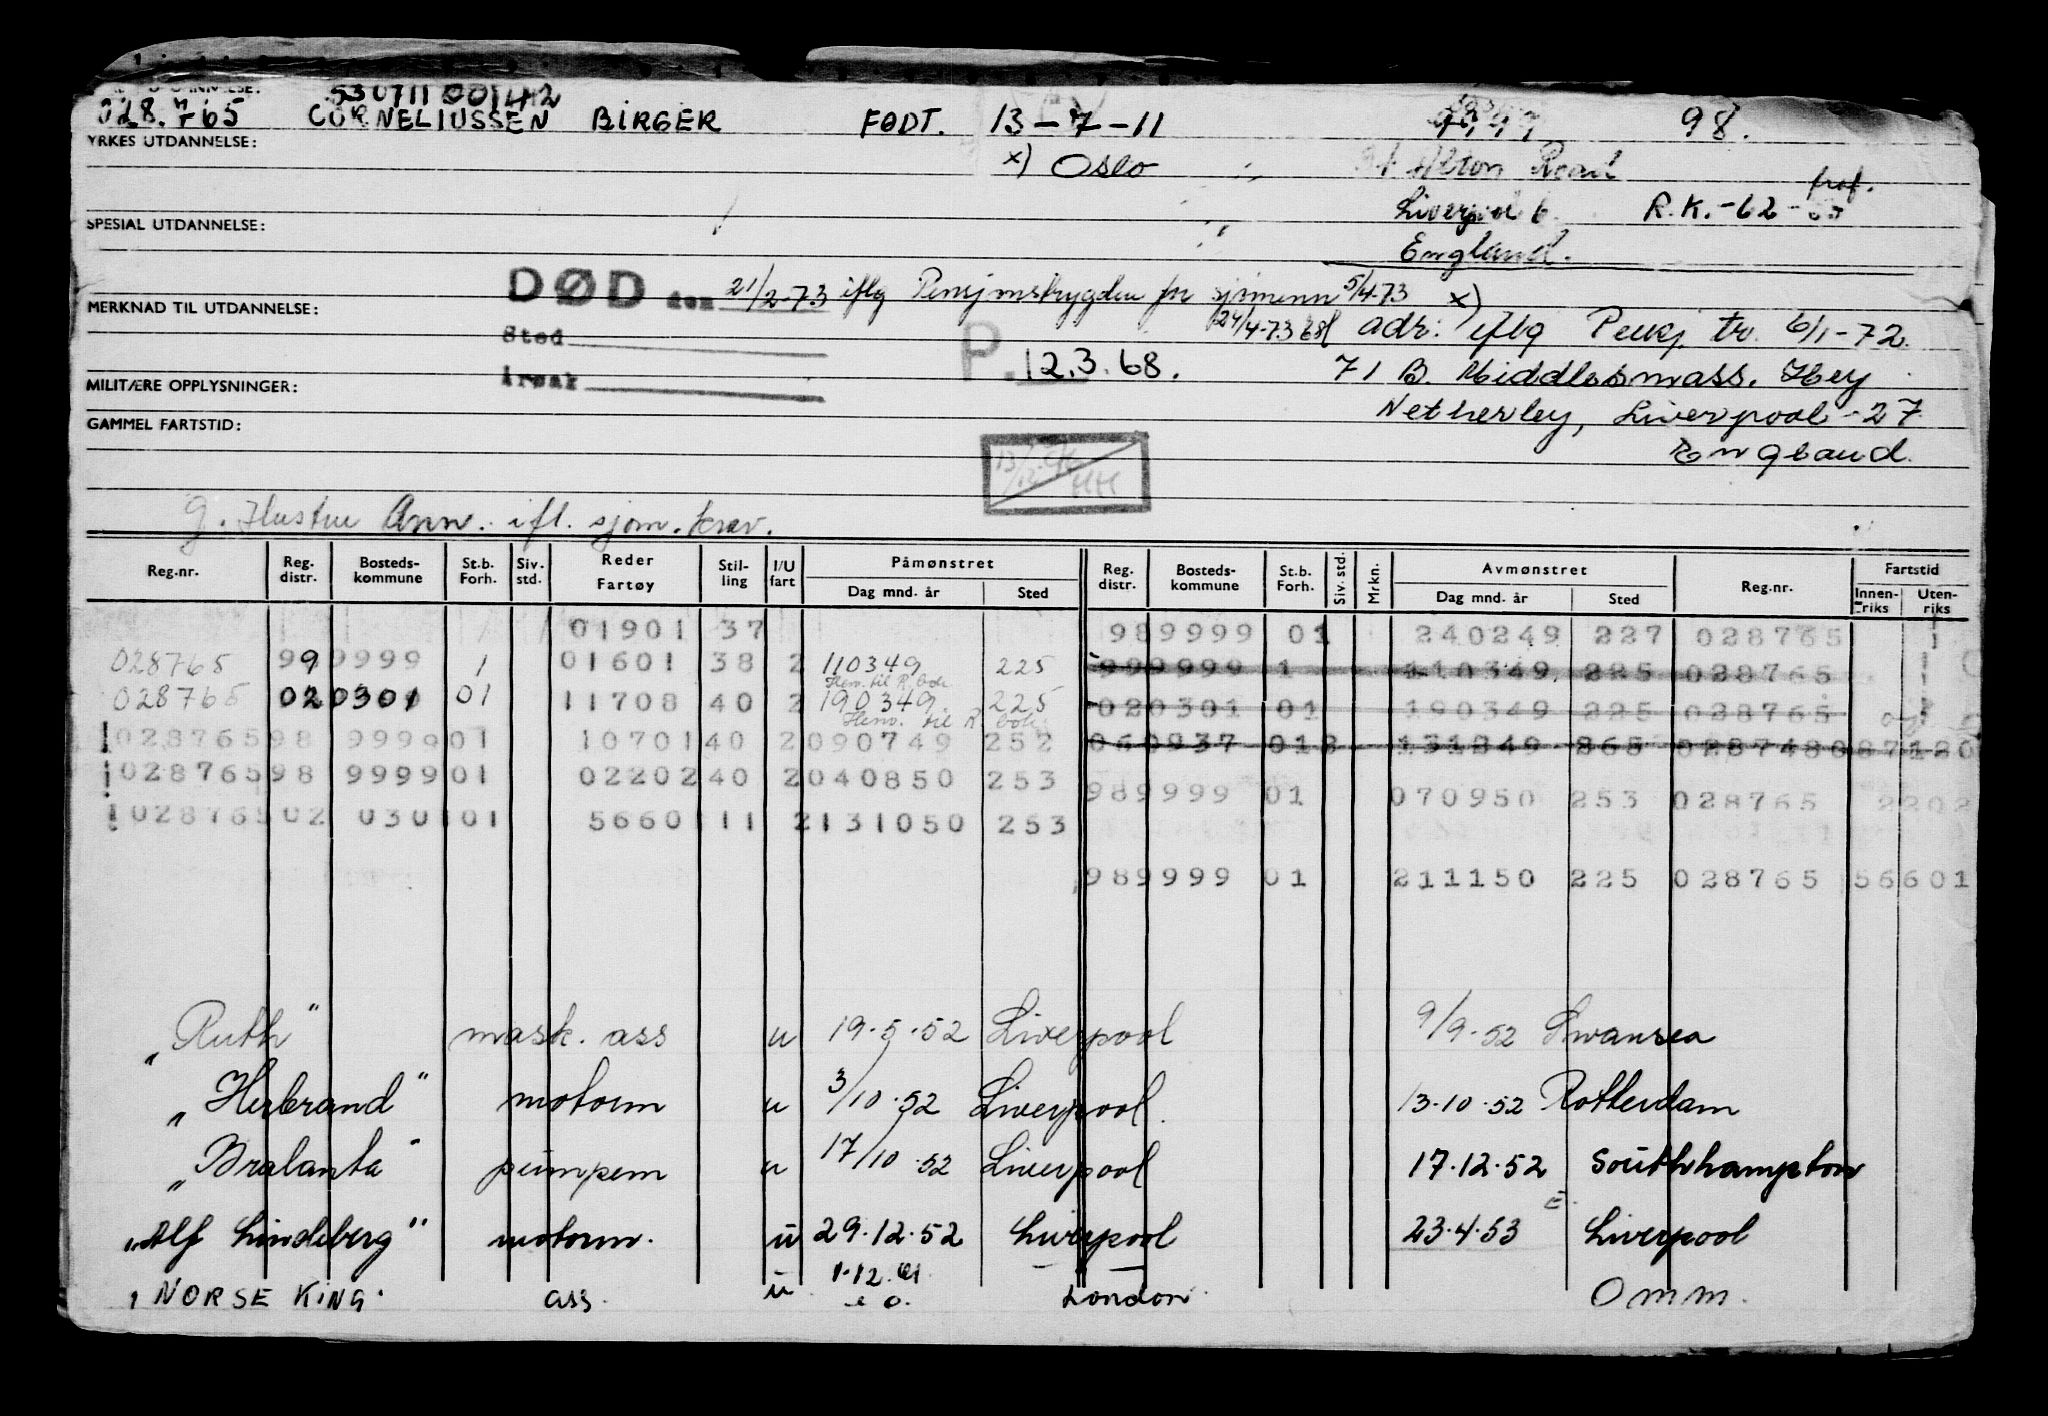 530711 00142
028.765 CORNELIUSSEN BIRGER FØDT. 13-7-11 98.
YRKES UTDANNELSE:
x) Oslo Road
Liverpool 6. R.K.-62-
SPESIAL UTDANNELSE:
England.
DØD den 21/2-73 iflg Pensjonstrygden for sjømenn 5/4-73 x)
MERKNAD TIL UTDANNELSE:
24/4-73 adr. iflg Pensj. tr. 6/1-72.
Sted
P. 12.3.68.
Årsak
71 B. Middlesmass. Hey
MILITÆRE OPPLYSNINGER:
Netherley, Liverpool-27
GAMMEL FARTSTID:
England.
g. Hustru Ann. ifl. sjøm. krav.
Reg.nr. Reg. distr. Bosteds-kommune St.b. Forh. Siv. std. Reder Fartøy Stil-ling I/U fart Påmønstret Dag mnd. år Sted Reg. distr. Bosteds-kommune St.b. Forh. Siv. std. Mrkn. Avmønstret Dag mnd. år Sted Reg.nr. Fartstid Innen-riks Uten-riks
01901 37 989999 01 240249 227 028765
028765 999999 1 01601 38 2 110349 225 999999 1 110349 225 028765
Henv. til R. bok
028765 020301 01 11708 40 2 190349 225 020301 01 190349 225 028765
Henv. til R. bok
028765 98 9999 01 10701 40 2 090749 252 060937 013 131249 265 028748087120
028765 98 9999 01 02202 40 2 040850 253 989999 01 070950 253 028765 2202
028765 02 0301 01 5660 11 2 131050 253
989999 01 211150 225 028765 56601
"Ruth" mask. ass u 19.5.52 Liverpool 9/9-52 Swansea
"Herbrand" motorm u 3/10.52 Liverpool. 13.10.52 Rotterdam
"Bralanta" pumpem u 17/10.52 Liverpool 17.12.52 Southhampton
"Alf Lindeberg" motorm. u 29.12.52 Liverpool 23.4.53 Liverpool
"NORSE KING" ass. u 1.12.61 London. Omm.